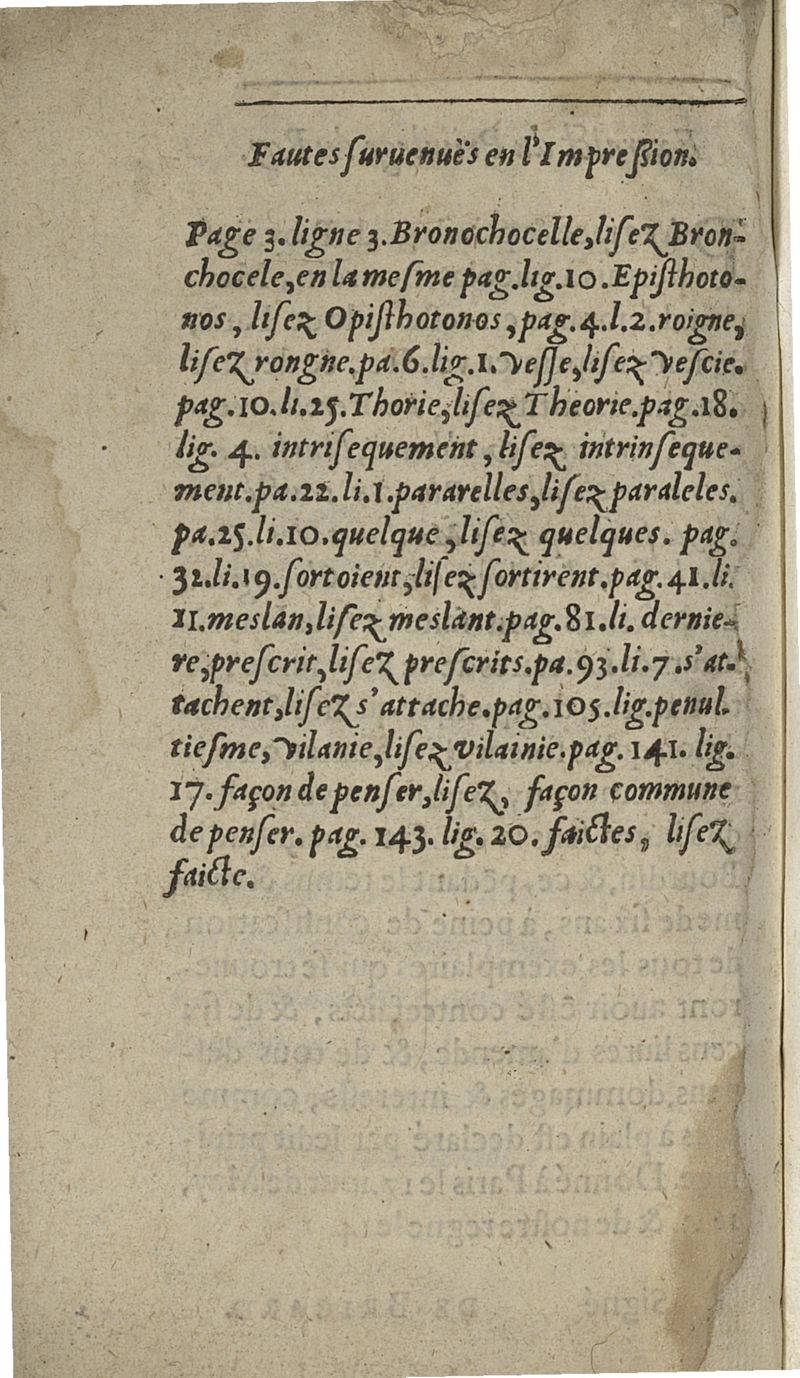 Fautes ſuruenuës en l'Impreſſion.
Page 3. ligne 3. Bronochocelle, liſez Bron-
chocele, en la meſme pag. lig. 10. Epiſthoto-
nos, liſez Opiſthotonos, pag. 4. l. 2. roigne,
liſez rongne. pa. 6. lig. 1. Veſſe, liſez Veſcie.
pag. 10. li. 25. Thorie, liſez Theorie. pag. 18.
lig. 4. intriſequement, liſez intrinſeque-
ment. pa. 22. li. 1. pararelles, liſez paraleles.
pa. 25. li. 10. quelque, liſez quelques. pag.
32. li. 19. ſortoient, liſez ſortirent. pag. 41. li.
11. meslan, liſez meslant. pag. 81. li. dernie-
re, preſcrit, liſez preſcrits. pa. 93. li. 7. s'at-
tachent, liſez s'attache. pag. 105. lig. penul.
tieſme, Vilanie, liſez vilainie. pag. 141. lig.
17. façon de penſer, liſez, façon commune
de penſer. pag. 143. lig. 20. faictes, liſez
faicte.